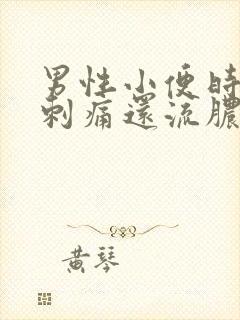 男性小便時
刺痛還流膿
黃琴